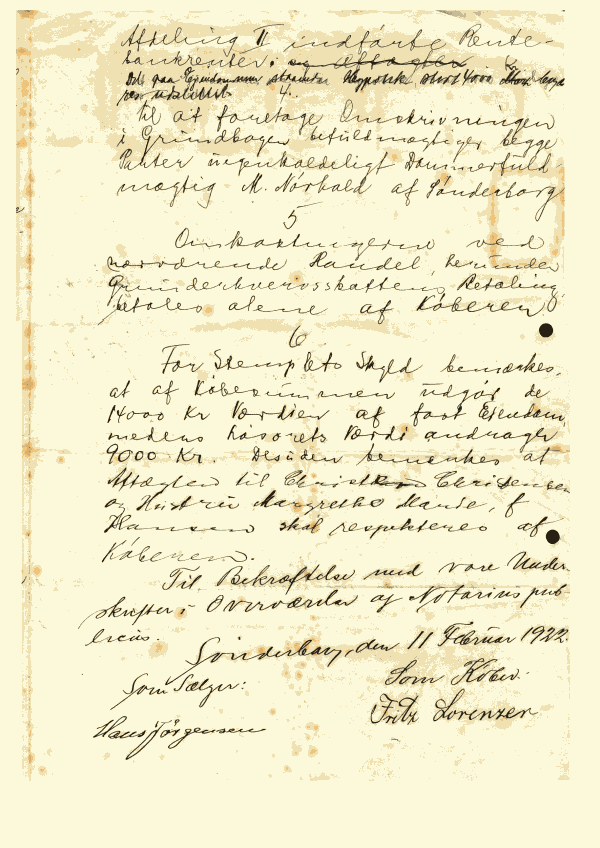 Afdeling II indførte Rente-
bankrenter.
Det paa Ejendommen
til at foretage Omskrivningen
i Grundbogen befuldmægtiger begge
Parter uigenkaldeligt Dommerfuld
mægtig M. Nørhald af Sønderborg
5
Omkostningerne ved
nærværende Handel, herunder
Grunderhvervsskattens Betaling,
betales alene af Køberen
6
For Stemplets Skyld bemærkes,
at af Købesummen udgør de
14000 Kr Værdien af fast Ejendom,
medens Løsørets Værdi andrager
9000 Kr. Desuden bemærkes at
Aftægten til Christian Christensen
og Hustru Margrethe Marie, f
Hansen skal respekteres af
Køberen.
Til Bekræftelse med vore Under-
skrifter i Overværelse af Notarius pub
licus.
Sønderborg, den 11 Februar 1922.
Som Sælger: Som Køber.
Hans Jørgensen Fritz Lorenzen